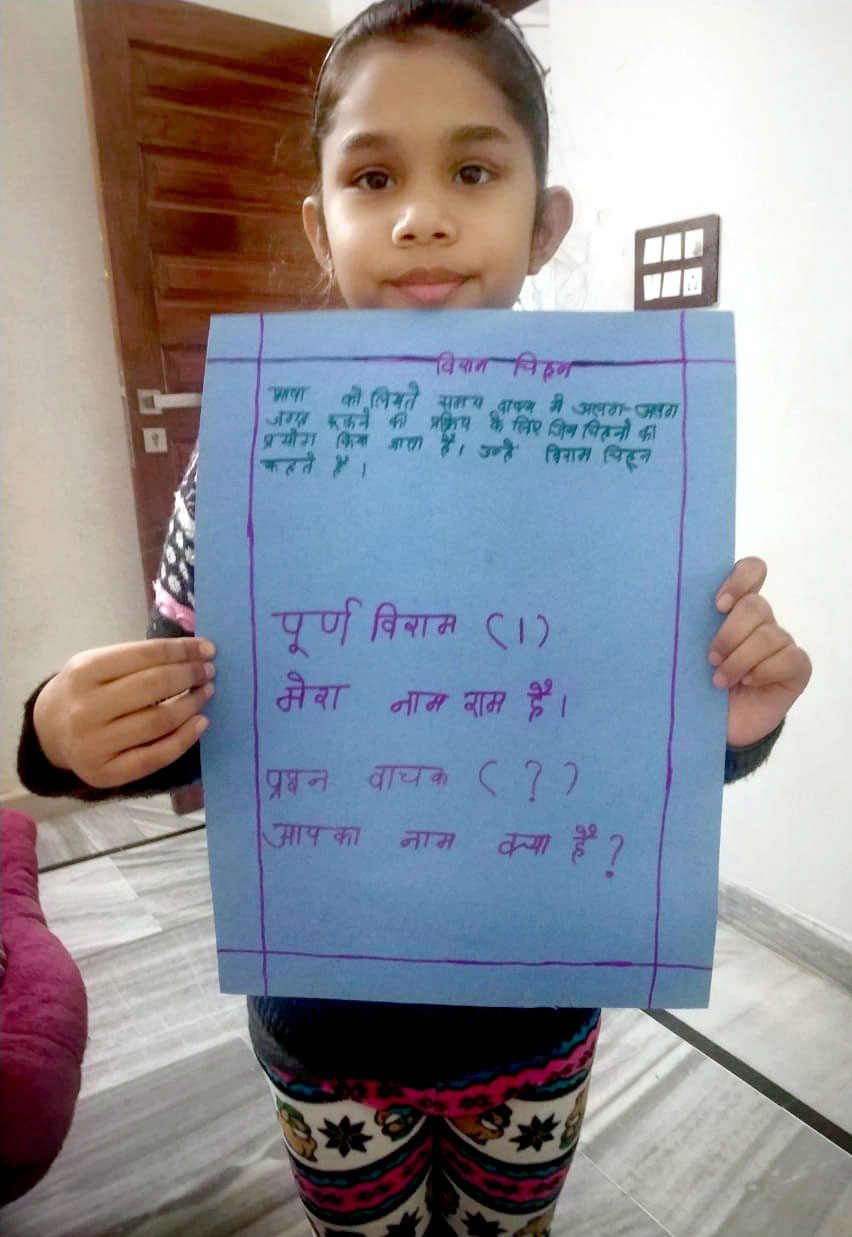 विराम चिहन
भाषा को लिखते समय वाक्य में अलग-अलग
जगह रूकने की प्रक्रिय के लिए जिन चिहनो का
प्रयोग किया जाता है। उन्हें विराम चिहन
कहते है।
पूर्ण विराम (।)
मेरा नाम राम है।
प्रश्न वाचक (?)
आपका नाम क्या है?